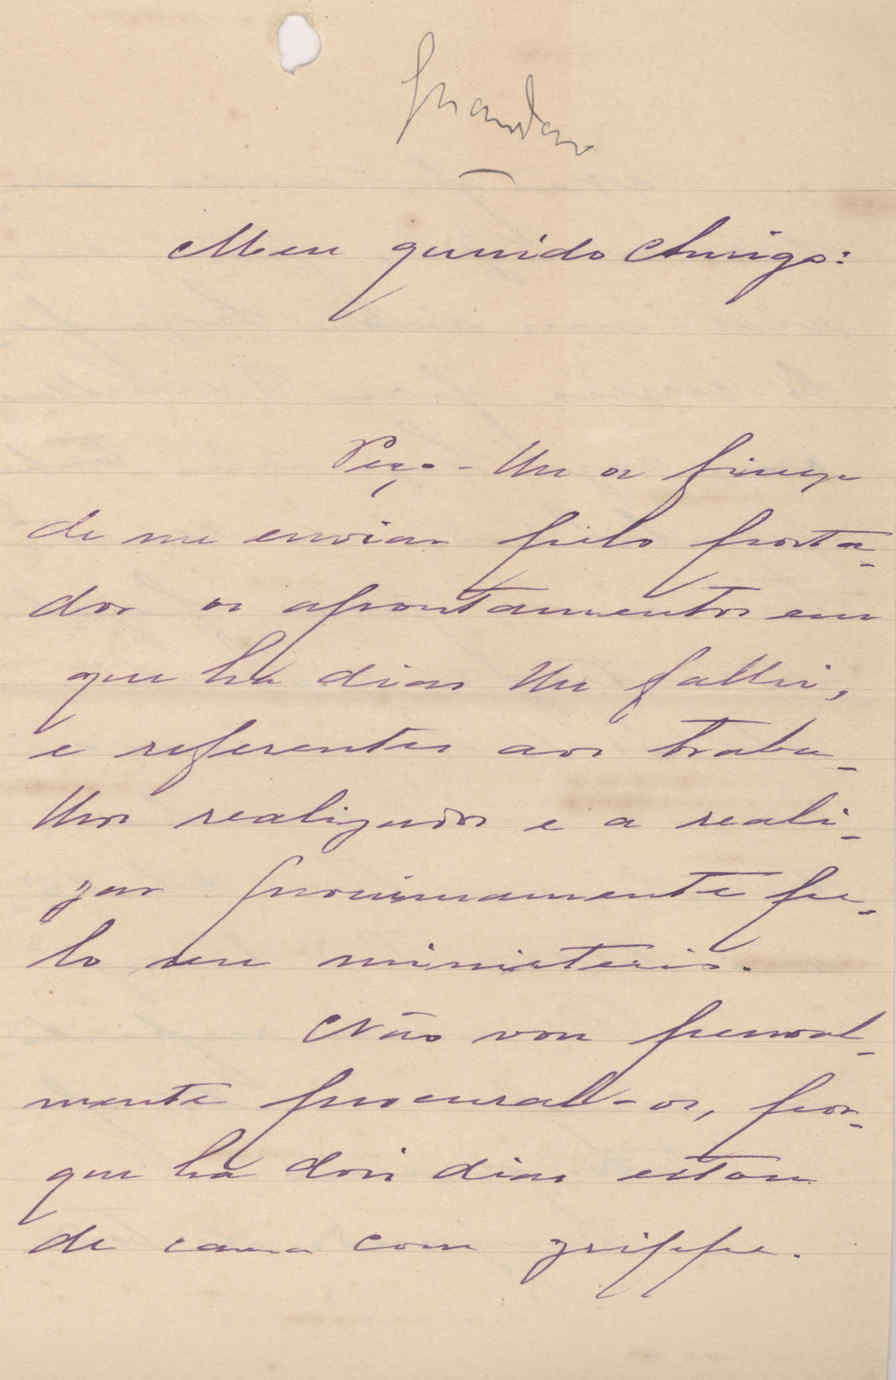 Guardar
Meu querido Amigo:
Peço-lhe a fineza
de me enviar pelo porta-
dor os apontamentos em
que ha dias lhe fallei,
e referentes aos traba-
lhos realizados e a reali-
zar proximamente pe-
lo seu ministerio.
Não vou pessoal-
mente procural-os, por-
que ha dois dias estou
de cama com grippe.